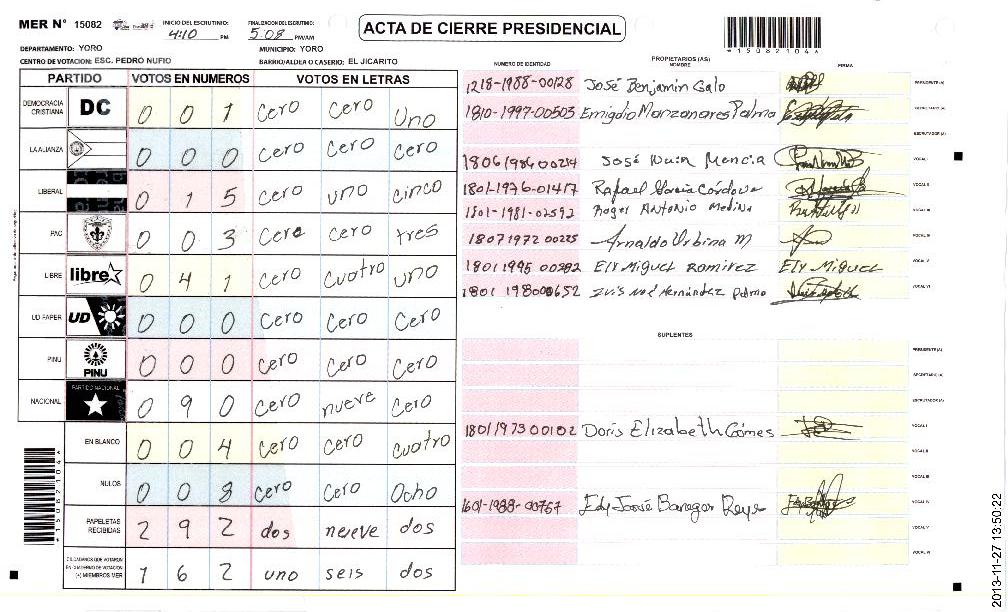 MER N° 15082
INICIO DEL ESCRUTINIO: 4:10 PM
FINALIZACION DEL ESCRUTINIO: 5:08 PM/AM
ACTA DE CIERRE PRESIDENCIAL
*15082104*
DEPARTAMENTO: YORO
MUNICIPIO: YORO
CENTRO DE VOTACION: ESC. PEDRO NUFIO
BARRIO/ALDEA O CASERIO: EL JICARITO
PARTIDO VOTOS EN NUMEROS VOTOS EN LETRAS
DEMOCRACIA CRISTIANA DC 0 0 1 Cero Cero Uno
LA ALIANZA 0 0 0 Cero Cero Cero
LIBERAL 0 1 5 Cero uno cinco
PAC 0 0 3 Cero Cero tres
LIBRE libre 0 4 1 Cero Cuatro uno
UD FAPER UD 0 0 0 Cero Cero Cero
PINU PINU 0 0 0 Cero Cero Cero
NACIONAL PARTIDO NACIONAL 0 9 0 Cero nueve Cero
EN BLANCO 0 0 4 Cero Cero Cuatro
NULOS 0 0 8 Cero Cero Ocho
PAPELETAS RECIBIDAS 2 9 2 dos nueve dos
CIUDADANOS QUE VOTARON EN CUADERNO DE VOTACION (+) MIEMBROS MER 1 6 2 uno seis dos
*15082104*
PROPIETARIOS (AS)
NUMERO DE IDENTIDAD NOMBRE FIRMA
1218-1988-00128 José Benjamín Galo PRESIDENTE (A)
1810-1997-00503 Emigdio Manzanares Palma SECRETARIO (A)
ESCRUTADOR (A)
1806 1986 00214 José Mencia VOCAL I
1801-1976-01417 Rafael García Córdova VOCAL II
1801-1981-02592 Roger Antonio Medina VOCAL III
1807 1972 00225 Arnaldo Urbina M VOCAL IV
1801 1995 00282 Ely Miguel Ramirez Ely Miguel VOCAL V
1801 1980 00652 Luis Noé Hernández Palma VOCAL VI
SUPLENTES
PRESIDENTE (A)
SECRETARIO (A)
ESCRUTADOR (A)
1801 1973 00102 Doris Elizabeth Gómes VOCAL I
VOCAL II
VOCAL III
1601-1988-00767 Edy José Banegas Reyes VOCAL IV
VOCAL V
VOCAL VI
2013-11-27 13:50:22